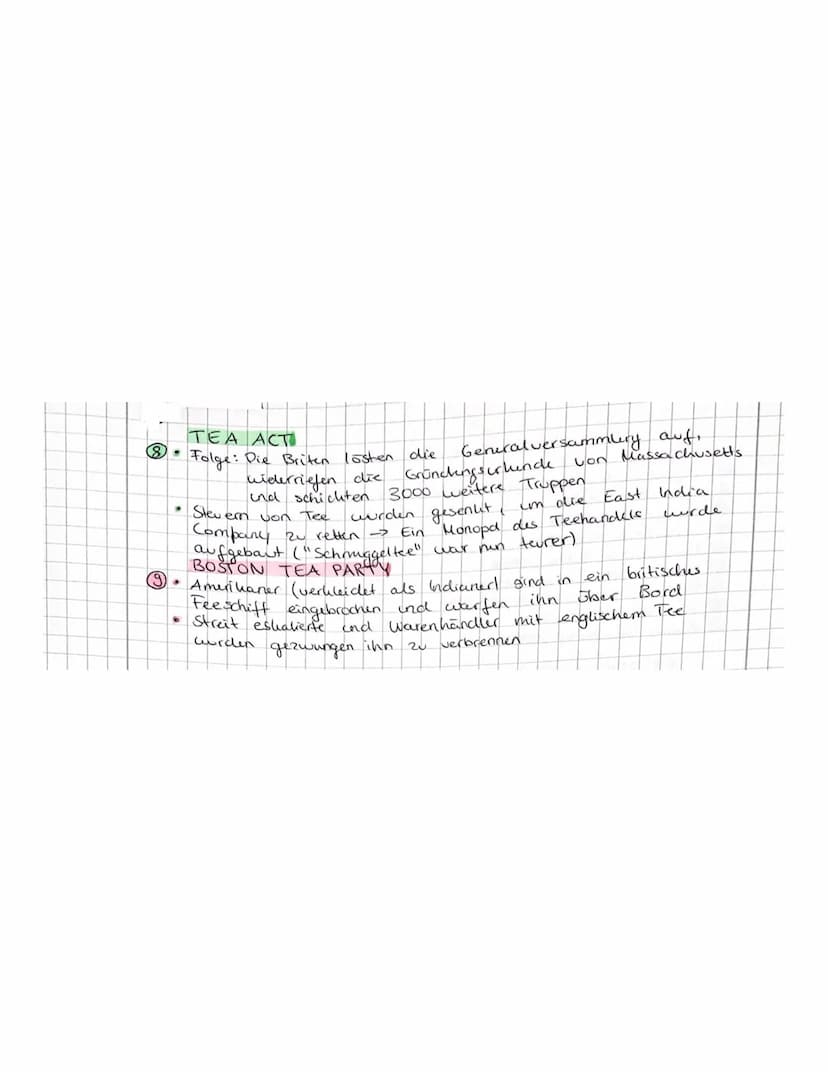 TEA ACT
⑧ • Folge: Die Briten lösten die Generalversammlung auf,
widerriefen die Gründungsurkunde von Massachusetts
und schickten 3000 weitere Truppen
• Steuern von Tee wurden gesenkt, um die East India
Company zu retten → Ein Monopol des Teehandels wurde
aufgebaut ("Schmuggeltee" war nun teurer)
BOSTON TEA PARTY
⑨ • Amerikaner (verkleidet als Indianer) sind in ein britisches
Teeschiff eingebrochen und warfen ihn über Bord
• Streit eskalierte und Warenhändler mit englischem Tee
wurden gezwungen ihn zu verbrennen